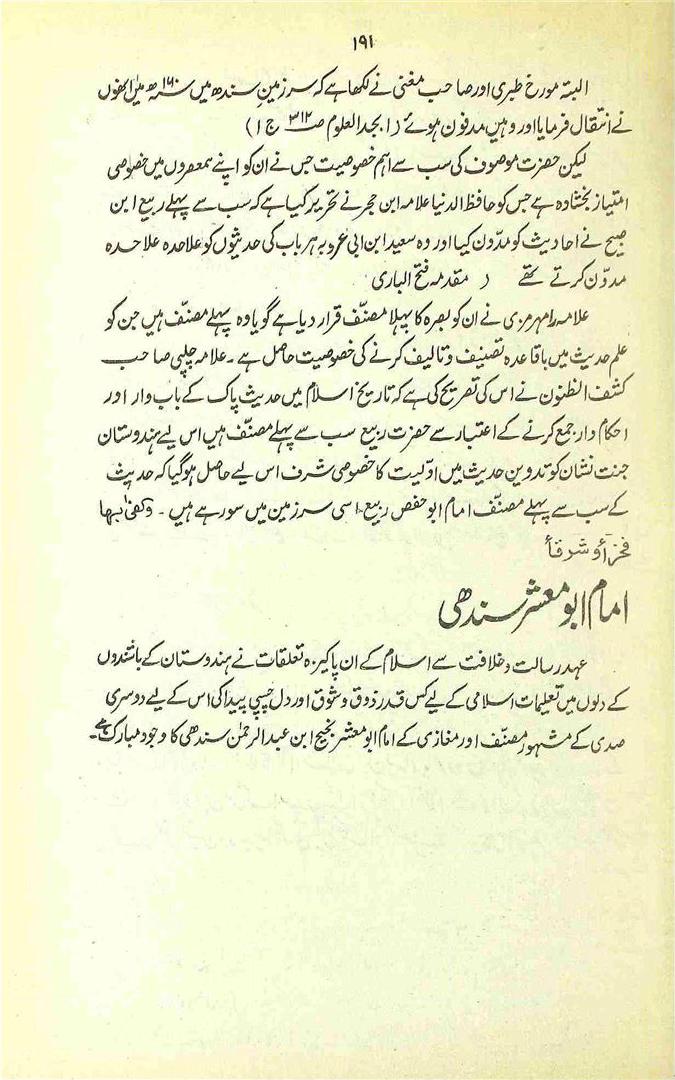 ۱۹۱
البتہ مورخ طبری اور صاحب مغنی نے لکھا ہے کہ سرزمین سندھ میں ۱۶۰ھ میں انھوں
نے انتقال فرمایا اور وہیں مدفون ہوئے (ابجد العلوم ص ۳۱۲ ج ۱)
لیکن حضرت موصوف کی سب سے اہم خصوصیت جس نے ان کو اپنے ہمعصروں میں خصوصی
امتیاز بخشا وہ ہے جس کو حافظ الدنیا علامہ ابن حجر نے تحریر کیا ہے کہ سب سے پہلے ربیع ابن
صبیح نے احادیث کو مدّون کیا اور وہ سعید ابن ابی عروبہ ہر باب کی حدیثوں کو علاحدہ علاحدہ
مدوّن کرتے تھے ( مقدمہ فتح الباری
علامہ رامہرمزی نے ان کو بصرہ کا پہلا مصنّف قرار دیا ہے گویا وہ پہلے مصنّف ہیں جن کو
علم حدیث میں باقاعدہ تصنیف و تالیف کرنے کی خصوصیت حاصل ہے۔ علامہ چلپی صاحب
کشف الظنون نے اس کی تصریح کی ہے کہ تاریخ اسلام میں حدیث پاک کے باب وار اور
احکام وار جمع کرنے کے اعتبار سے حضرت ربیع سب سے پہلے مصنّف ہیں اس لیے ہندوستان
جنت نشان کو تدوین حدیث میں اوّلیت کا خصوصی شرف اس لیے حاصل ہوگیا کہ حدیث
کے سب سے پہلے مصنّف امام ابو حفص ربیع اسی سرزمین میں سو رہے ہیں۔ وکفیٰ بہا
فخراً وشرفاً
امام ابو معشر سندھی
عہد رسالت و خلافت سے اسلام کے ان پاکیزہ تعلقات نے ہندوستان کے باشندوں
کے دلوں میں تعلیمات اسلامی کے لیے کس قدر ذوق و شوق اور دل چسپی پیدا کی اس کے لیے دوسری
صدی کے مشہور مصنّف اور مغازی کے امام ابو معشر نجیح ابن عبد الرحمٰن سندھی کا وجود مبارک ہے۔